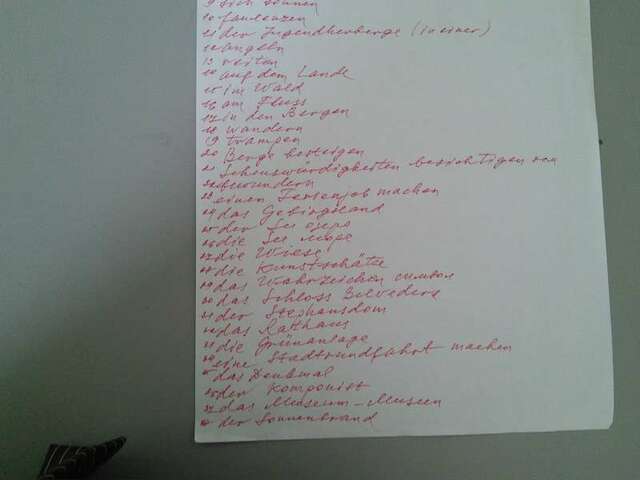 9 sich sonnen
10 faulenzen
11 der Jugendherberge (in einer)
12 angeln
13 reiten
14 auf dem Lande
15 im Wald
16 am Fluss
17 in den Bergen
18 wandern
19 trampen
20 Berge besteigen
21 Sehenswürdigkeiten besichtigen
22 bewundern
23 einen Ferienjob machen
24 das Gebirgsland
25 der See озеро
26 die See море
27 die Wiese
28 die Kunstschätze
29 das Wahrzeichen символ
30 das Schloss Belvedere
31 der Stephansdom
32 das Rathaus
33 die Grünanlage
34 eine Stadtrundfahrt machen
35 das Denkmal
36 der Komponist
37 das Museum - Museen
38 der Sonnenbrand